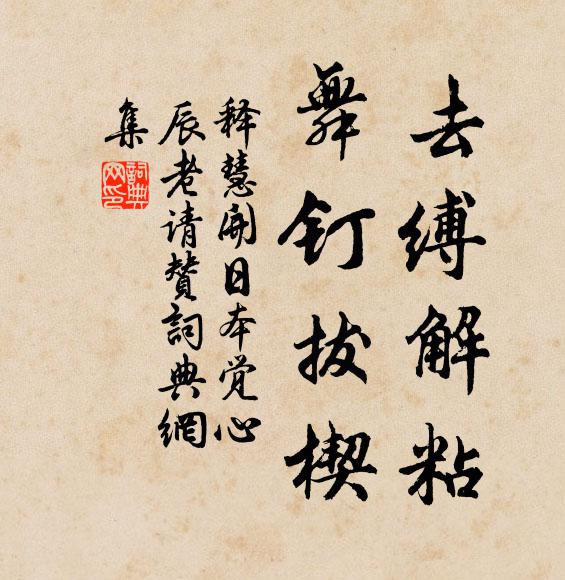 去缚解粘
舞钉拔楔
释慧开日本觉心
辰老请赞詞典網
集
詞典网印